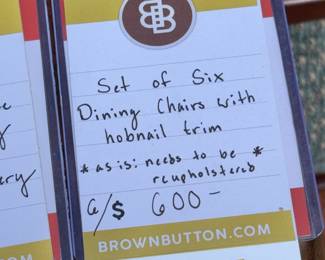 BB
Set of Six
Dining Chairs with
hobnail trim
* as is: needs to be *
reupholstered
6/$ 600-
BROWNBUTTON.COM
N.COM